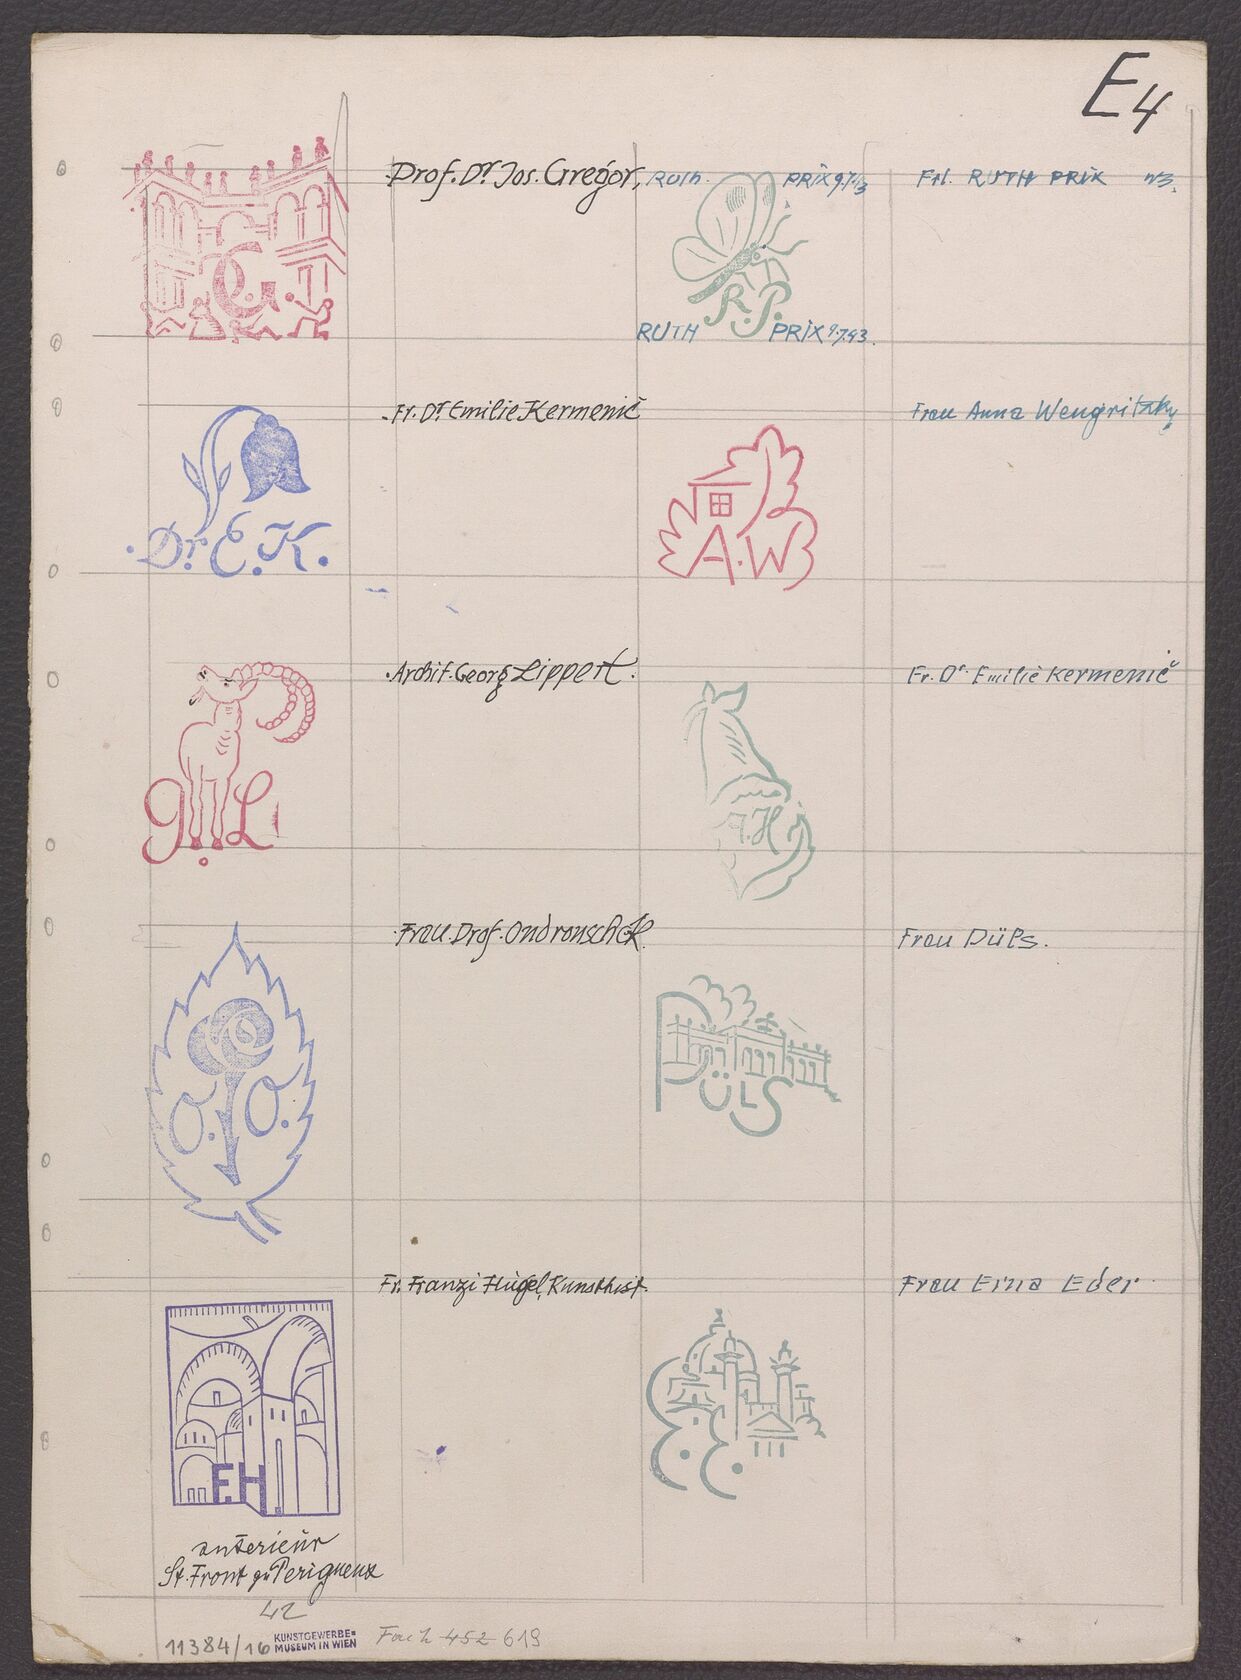 E4
Prof. Dr Jos. Gregor,
Ruth PRIX 9.7.43
Frl. RUTH PRIX
G.
R.P.
RUTH PRIX 9.7.43.
Fr. Dr Emilie Kermenič
Frau Anna Wengritzky
Dr. E. K.
A.W
Archit. Georg Lippert.
Fr. Dr Emilie Kermenič
g. L
A.H
Frau Prof. Ondrouschek
Frau Püls.
O. O.
PÜLS
Fr. Franzi Hügel, Kunsthist.
Frau Erna Eder
E. E.
F.H.
anterieur
St. Front zu Perigueux
42
11384/16 KUNSTGEWERBE=
MUSEUM IN WIEN
Fach 452 619